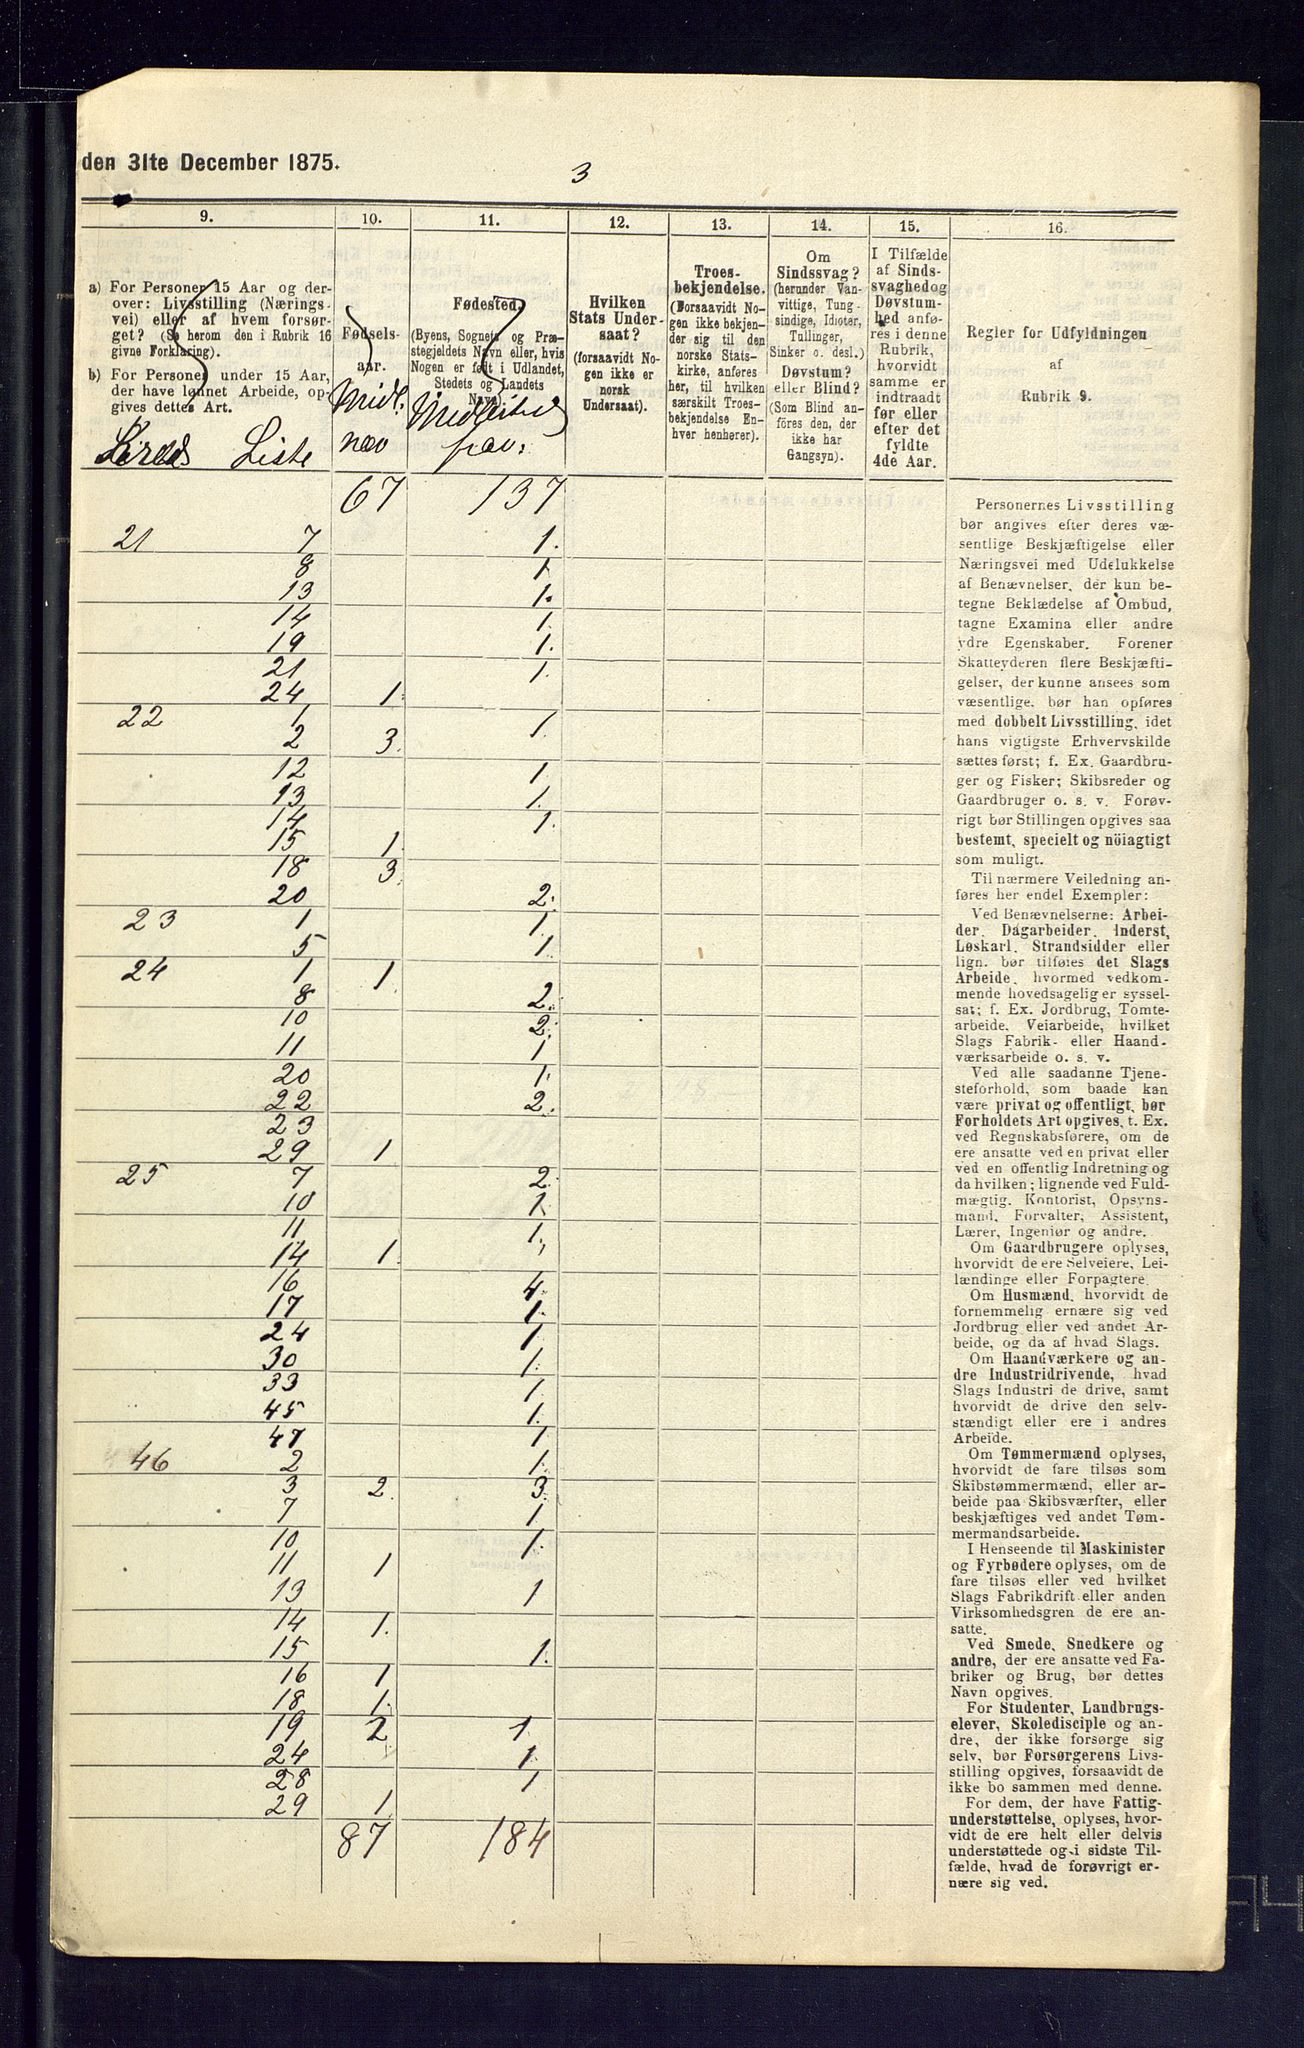 den 31te December 1875.
3
9.
10.
11.
12.
13.
14.
15.
16.
a) For Personer 15 Aar og der-
over: Livsstilling (Nærings-
vei) eller af hvem forsør-
get? (Se herom den i Rubrik 16
givne Forklaring).
b) For Personer under 15 Aar,
der have lønnet Arbeide, op-
gives dettes Art.
Kreds Liste
Fødsels-
aar.
Midl.
nær
Fødested.
(Byens, Sognets og Præ-
stegjeldets Navn eller, hvis
Nogen er født i Udlandet,
Stedets og Landets
Navn).
Midlertid
fravr.
Hvilken
Stats Under-
saat?
(forsaavidt No-
gen ikke er
norsk
Undersaat).
Troes-
bekjendelse.
(Forsaavidt No-
gen ikke bekjen-
der sig til den
norske Stats-
kirke, anføres
her, til hvilken
særskilt Troes-
bekjendelse En-
hver henhører).
Om
Sindssvag?
(herunder Van-
vittige, Tung-
sindige, Idioter,
Tullinger,
Sinker o. desl.)
Døvstum?
eller Blind?
(Som Blind an-
føres den, der
ikke har
Gangsyn).
I Tilfælde
af Sinds-
svaghed og
Døvstum-
hed anfø-
res i denne
Rubrik,
hvorvidt
samme er
indtraadt
før eller
efter det
fyldte
4de Aar.
Regler for Udfyldningen
af
Rubrik 9.
67 137
21 7 1.
8 1
13 1.
14 1.
19 1.
21 1.
24 1.
22 1 1.
2 3.
12 1.
13 1.
14 1.
15 1.
18 3.
20 2.
23 1 1.
5 1
24 1 1.
8 2.
10 2.
11 1
20 1.
22 2.
23
29 1
25 7 2.
10 1.
11 1.
14 1.
16 4.
17 1.
24 1
30 1.
33 1
45 1.
47 1
46 2 1.
3 2. 3.
7 1
10 1.
11 1
13 1
14 1.
15 1.
16 1
18 1.
19 2 1.
24 1.
28 1
29 1
87 184
Personernes Livsstilling
bør angives efter deres væ-
sentlige Beskjæftigelse eller
Næringsvei med Udelukkelse
af Benævnelser, der kun be-
tegne Beklædelse af Ombud,
tagne Examina eller andre
ydre Egenskaber. Forener
Skatteyderen flere Beskjæfti-
gelser, der kunne ansees som
væsentlige, bør han opføres
med dobbelt Livsstilling, idet
hans vigtigste Erhvervskilde
sættes først; f. Ex. Gaardbru-
ger og Fisker; Skibsreder og
Gaardbruger o. s. v. Forøv-
rigt bør Stillingen opgives saa
bestemt, specielt og nöiagtigt
som muligt.
Til nærmere Veiledning an-
føres her endel Exempler:
Ved Benævnelserne: Arbei-
der, Dagarbeider, Inderst,
Løskarl, Strandsidder eller
lign. bør tilføies det Slags
Arbeide, hvormed vedkom-
mende hovedsagelig er syssel-
sat; f. Ex. Jordbrug, Tomte-
arbeide, Veiarbeide, hvilket
Slags Fabrik- eller Haand-
værksarbeide o. s. v.
Ved alle saadanne Tjene-
steforhold, som baade kan
være privat og offentligt, bør
Forholdets Art opgives, t. Ex.
ved Regnskabsførere, om de
ere ansatte ved en privat eller
ved en offentlig Indretning og
da hvilken; lignende ved Fuld-
mægtig, Kontorist, Opsyns-
mand, Forvalter, Assistent,
Lærer, Ingeniør og andre.
Om Gaardbrugere oplyses,
hvorvidt de ere Selveiere, Lei-
lændinge eller Forpagtere.
Om Husmænd, hvorvidt de
fornemmelig ernære sig ved
Jordbrug eller ved andet Ar-
beide, og da af hvad Slags.
Om Haandværkere og an-
dre Industridrivende, hvad
Slags Industri de drive, samt
hvorvidt de drive den selv-
stændigt eller ere i andres
Arbeide.
Om Tømmermænd oplyses,
hvorvidt de fare tilsøs som
Skibstømmermænd, eller ar-
beide paa Skibsværfter, eller
beskjæftiges ved andet Tøm-
mermandsarbeide.
I Henseende til Maskinister
og Fyrbødere oplyses, om de
fare tilsøs eller ved hvilket
Slags Fabrikdrift eller anden
Virksomhedsgren de ere an-
satte.
Ved Smede, Snedkere og
andre, der ere ansatte ved Fa-
briker og Brug, bør dettes
Navn opgives.
For Studenter, Landbrugs-
elever, Skoledisciple og an-
dre, der ikke forsørge sig
selv, bør Forsørgerens Livs-
stilling opgives, forsaavidt de
ikke bo sammen med denne.
For dem, der have Fattig-
understøttelse, oplyses, hvor-
vidt de ere helt eller delvis
understøttede og i sidste Til-
fælde, hvad de forøvrigt er-
nære sig ved.